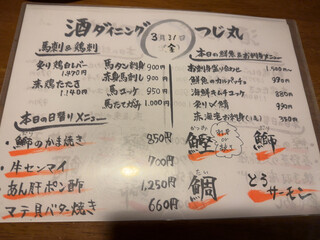 酒ダイニング つじ丸
3月21日
金
馬刺&鶏刺
炙り鶏白レバー
1,490円
赤鶏たたき
1,150円
馬タン刺 900円
赤身馬刺し 900円
馬ユッケ 950円
馬たてがみ 1,000円
本日の鮮魚&お刺身メニュー
お刺身盛り合わせ
鮮魚のカルパッチョ
海鮮ユッケ 880円
炙り〆鯖 990円
本日の日替りメニュー
・鰤のかま焼き 850円
・牛センマイ 700円
・あん肝ポン酢 1,250円
・マテ貝バター焼き 660円
かつお
鰹
鰤
たい
鯛
とろサーモン